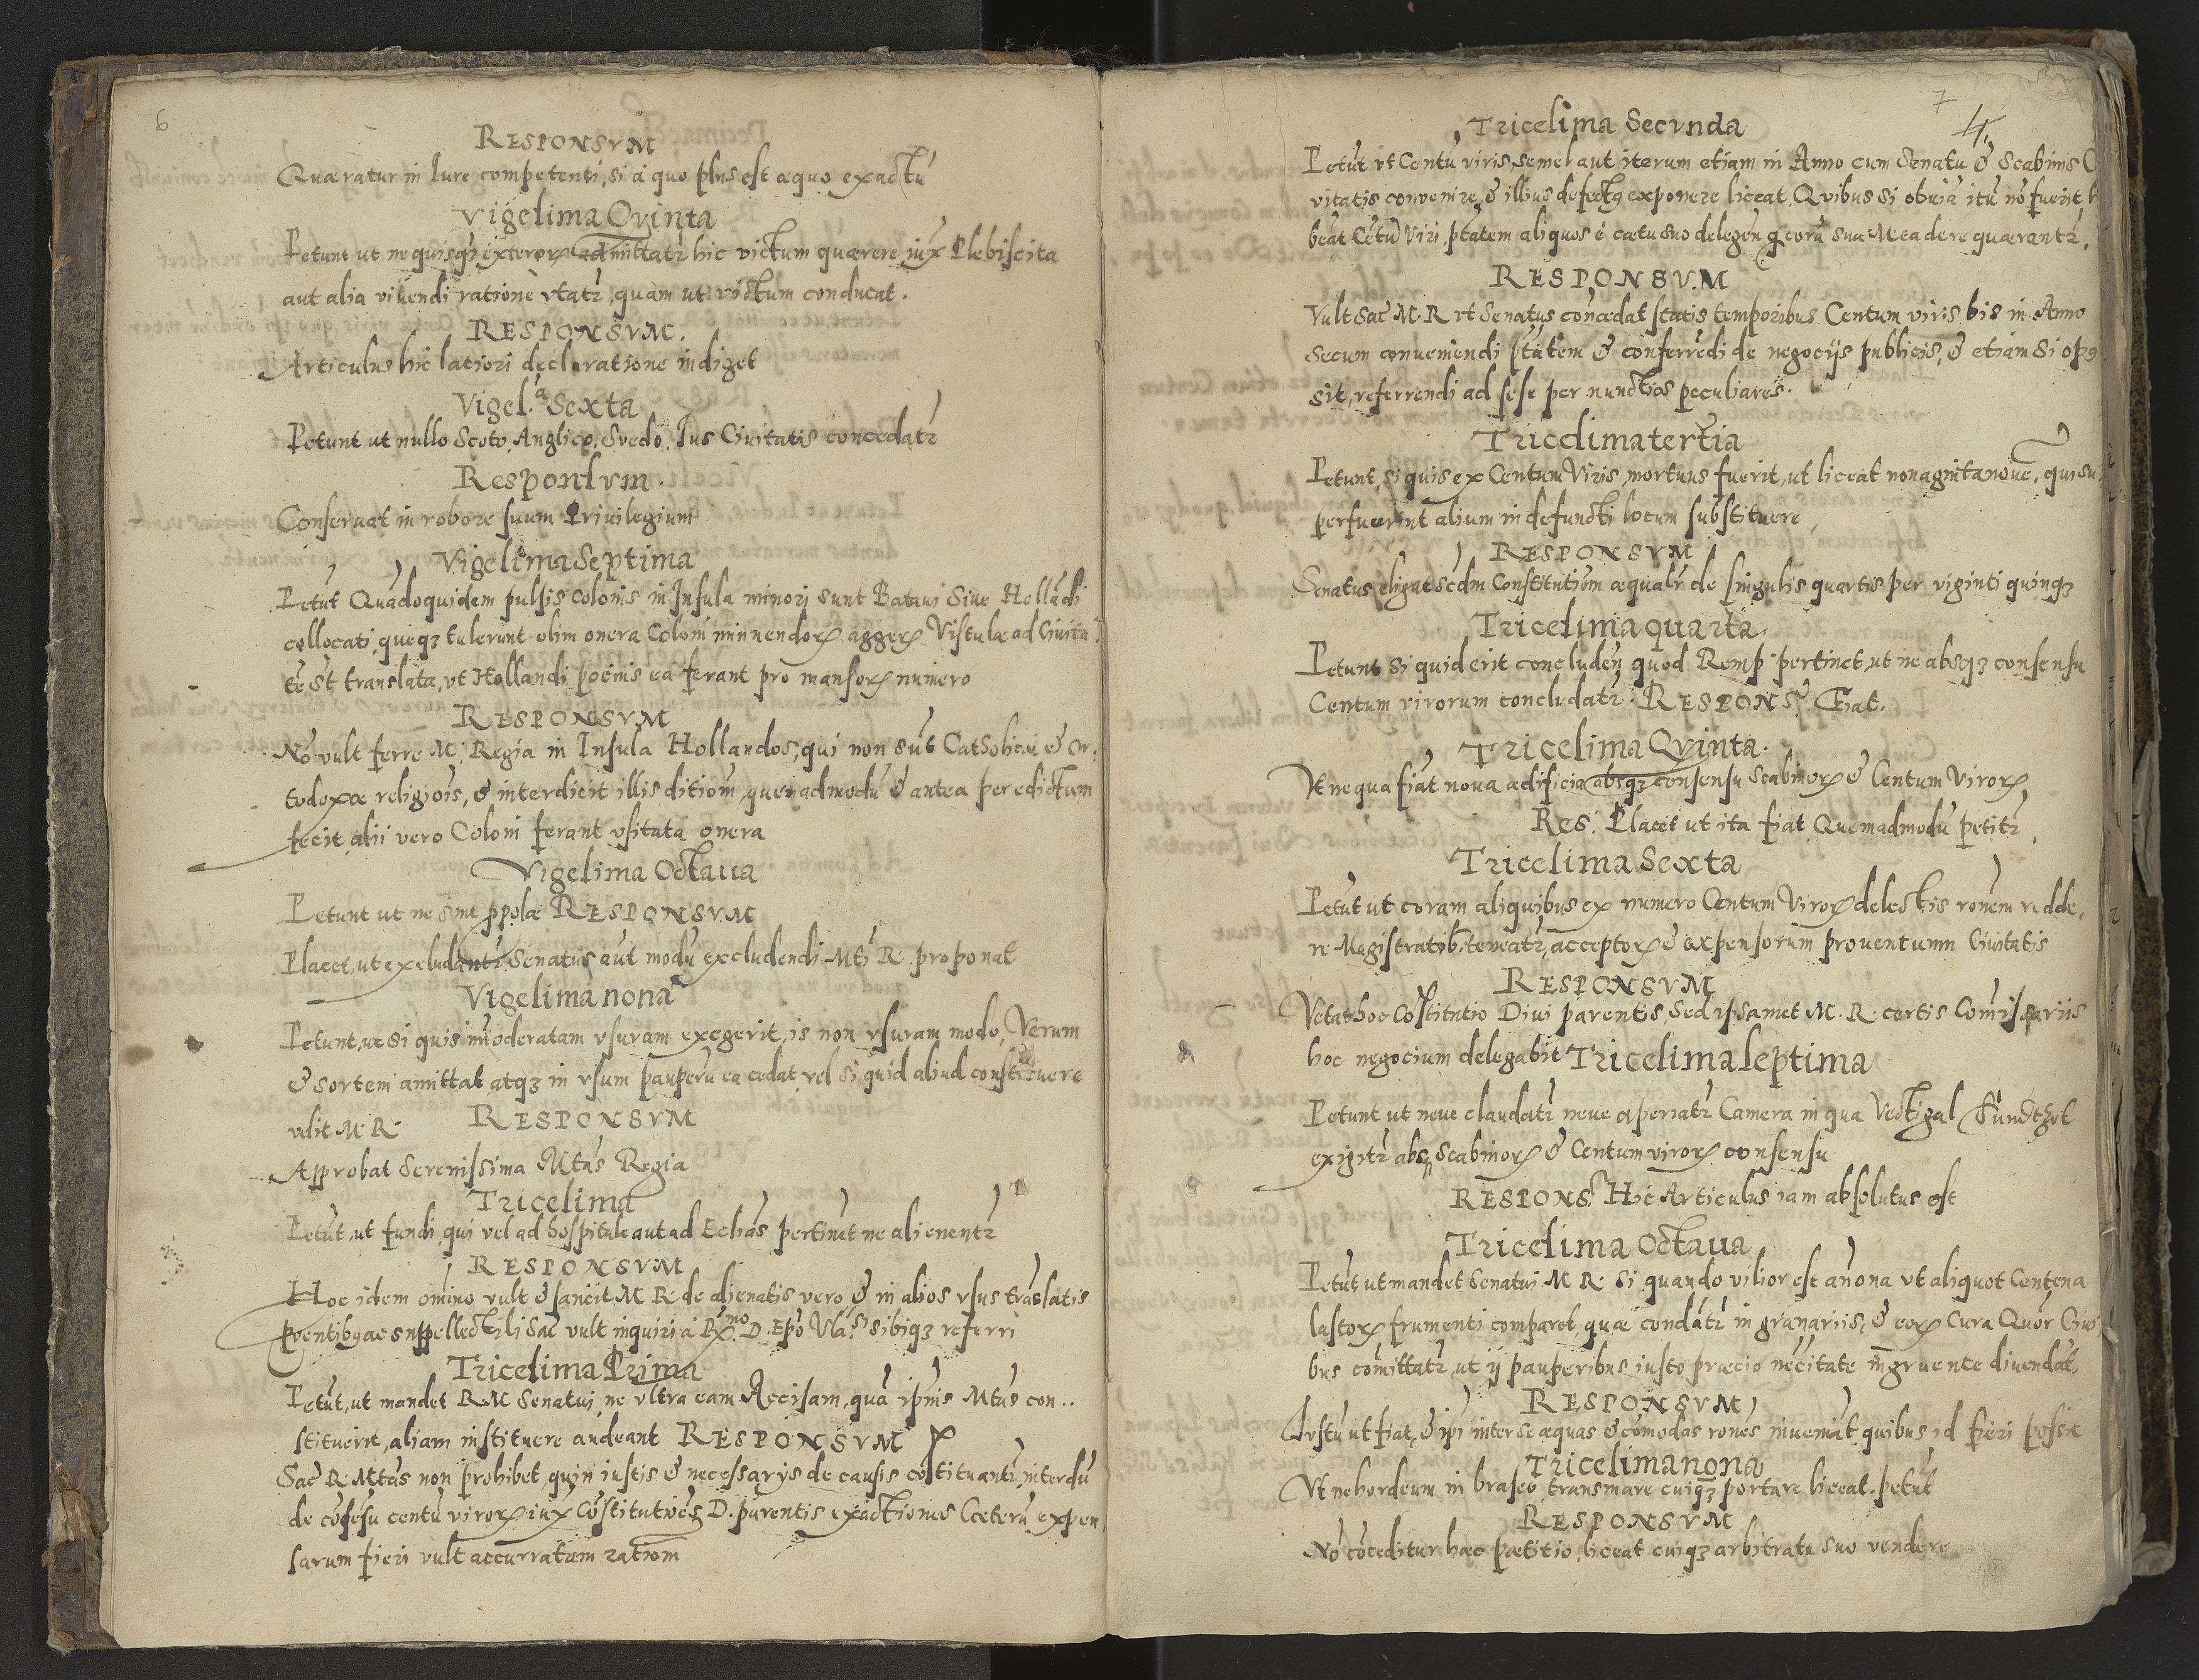 6
RESPONSVM
Quæratur in Iure competenti, si à quo plus est æquo exactū
Vigesima Qvinta
Petunt ut ne quisqȝ exterorꝝ admittatr hic victum quærere iux Plebiscita
aut alia viuendi ratione vtatr, quam ut victum conducat.
RESPONSVM.
Articulus hic latiori declaratione indiget
Vigesa Sexta
Petunt ut nullo Scoto, Anglico, Svedo, Ius Ciuitatis concedatr
Responsvm.
Conseruat in robore suum Priuilegium
Vigesima Septima
Petūt Quādoquidem pulsis colonis in Insula minori sunt Bataui Siue Hollādi
collocati, queqȝ tulerunt olim onera Coloni minuendorꝝ aggerꝝ Vistulæ ad Ciuita
tē St translata, vt Hollandi poenis ea ferant pro mansorꝝ numero
RESPONSVM
Nō vult ferre M. Regia in Insula Hollandos, qui non sūt Catholicæ & Or.
todoxæ religiōis, & interdicit illis ditiom̄, quemadmodū & antea per edictum
fecit, alii vero Coloni ferant vsitata onera
Vigesima Octaua
Petunt ut ne sint ꝓpolæ RESPONSVM
Placet, ut excludantr Senatus aut modū excludendi Mti R. proponat
Vigesima nona
Petunt, ut si quis im̄oderatam vsuram exegerit, is non vsuram modo, Verum
& sortem amittat atqȝ in vsum pauperū ea cedat vel si quid aliud constituere
velit M. R. RESPONSVM
Approbat Serenissima Mtās Regia
Tricesima
Petūt, ut fundi qui vel ad hospitale aut ad Eclias pertinēt ne alienentr
RESPONSVM
Hoc idem om̄ino vult & sancit M R de alienatis vero & in alios vsus trāslatis
ꝓuentibꝯ ac suppellectili Sac vult inquiri à Rx̄mo D. Epō Vla. sibiqȝ referri
Tricesima Prima
Petūt, ut mandet R M Senatui, ne vltra eam Accisam, quā ipsius Mtas con..
stituerit, aliam instituere audeant RESPONSVM
Sac R. Mtās non prohibet, quin iustis & necessarijs de causis cōstituantr interdū
de cōsēsu centū virorꝝ iux Cōstitutioēs D. parentis exactiones Cæterū expen
sarum fieri vult accurratam ratiom̄
7
4.
Tricesima Secvnda
Petūt vt Centū viris semel aut iterum etiam in Anno cum Senatu & Scabinis C
vitatis conuenire, & illius defectꝯ exponere liceat. Qvibus si obuiā itū nō fuerit h
beāt Cētū Viri ptatem aliquos è cætu suo delegen q corā sua M ea de re quærantr.
RESPONSVM
Vult Sac M. R vt Senatus concedat statis temporibus Centum viris bis in Anno
secum conueniendi ptātem & conferrēdi de negocijs publicis, & etiam Si opꝯ
sit, referrendi ad sese per nunctios peculiares.
Tricesima tertia
Petunt, si quis ex Centum Viris mortuus fuerit, ut liceat nonagintanouē, qui su,
perfuerint alium in defuncti locum substituere,
RESPONSVM
Senatus eligat secdm Constitutiōm æqualr de singulis quartis per viginti quinqȝ
Tricesima quarta.
Petunt si quid erit concluden quod Remp pertinet, ut ne absqȝ consensu
Centum virorum concludatr. RESPONS. Fiat.
Tricesima Qvinta.
Vt ne qua fiāt noua ædificia absqȝ consensu Scabinorꝝ & Centum Virorꝝ
Res. Placet ut ita fiat Quemadmodū petitr.
Tricesima Sexta
Petūt ut coram aliquibus ex numero Centum Virorꝝ delectis ronem redde,
re Magistratibꝯ teneatr, acceptorꝝ & expensorum prouentumn Ciuitatis
RESPONSVM
Vetat hoc Cōstitutio Diui parentis, Sed ipsamet M. R. certis Com̄issariis
hoc negocium delegabit Tricesima septima
Petunt ut neue claudatr neue aperiatr Camera in qua Vectigal Fundtzol
exigitr absqȝ Scabinorꝝ & Centum virorꝝ consensu
RESPONS. Hic Articulus iam absolutus est
Tricesima Octaua
Petūt, ut mandet Senatui M R. si quando vilior est anōna vt aliquot Centena
lastorꝝ frumenti comparet, quæ condātr in granariis, & eorꝝ Cura Quor Ciui
bus com̄ittatr, ut ij pauperibus iusto præcio necitate ingruente diuendāt.
RESPONSVM
Iustū ut fiat, & ipi inter se æquas & cōmodas rones inueniāt quibus id fieri possit
Tricesima nona
Vt ne hordeum in braseo transmare cuiqȝ portare liceat. petūt
RESPONSVM
Nō cōceditur hæc pætitio, liceat cuiqȝ arbitratu suo vendere